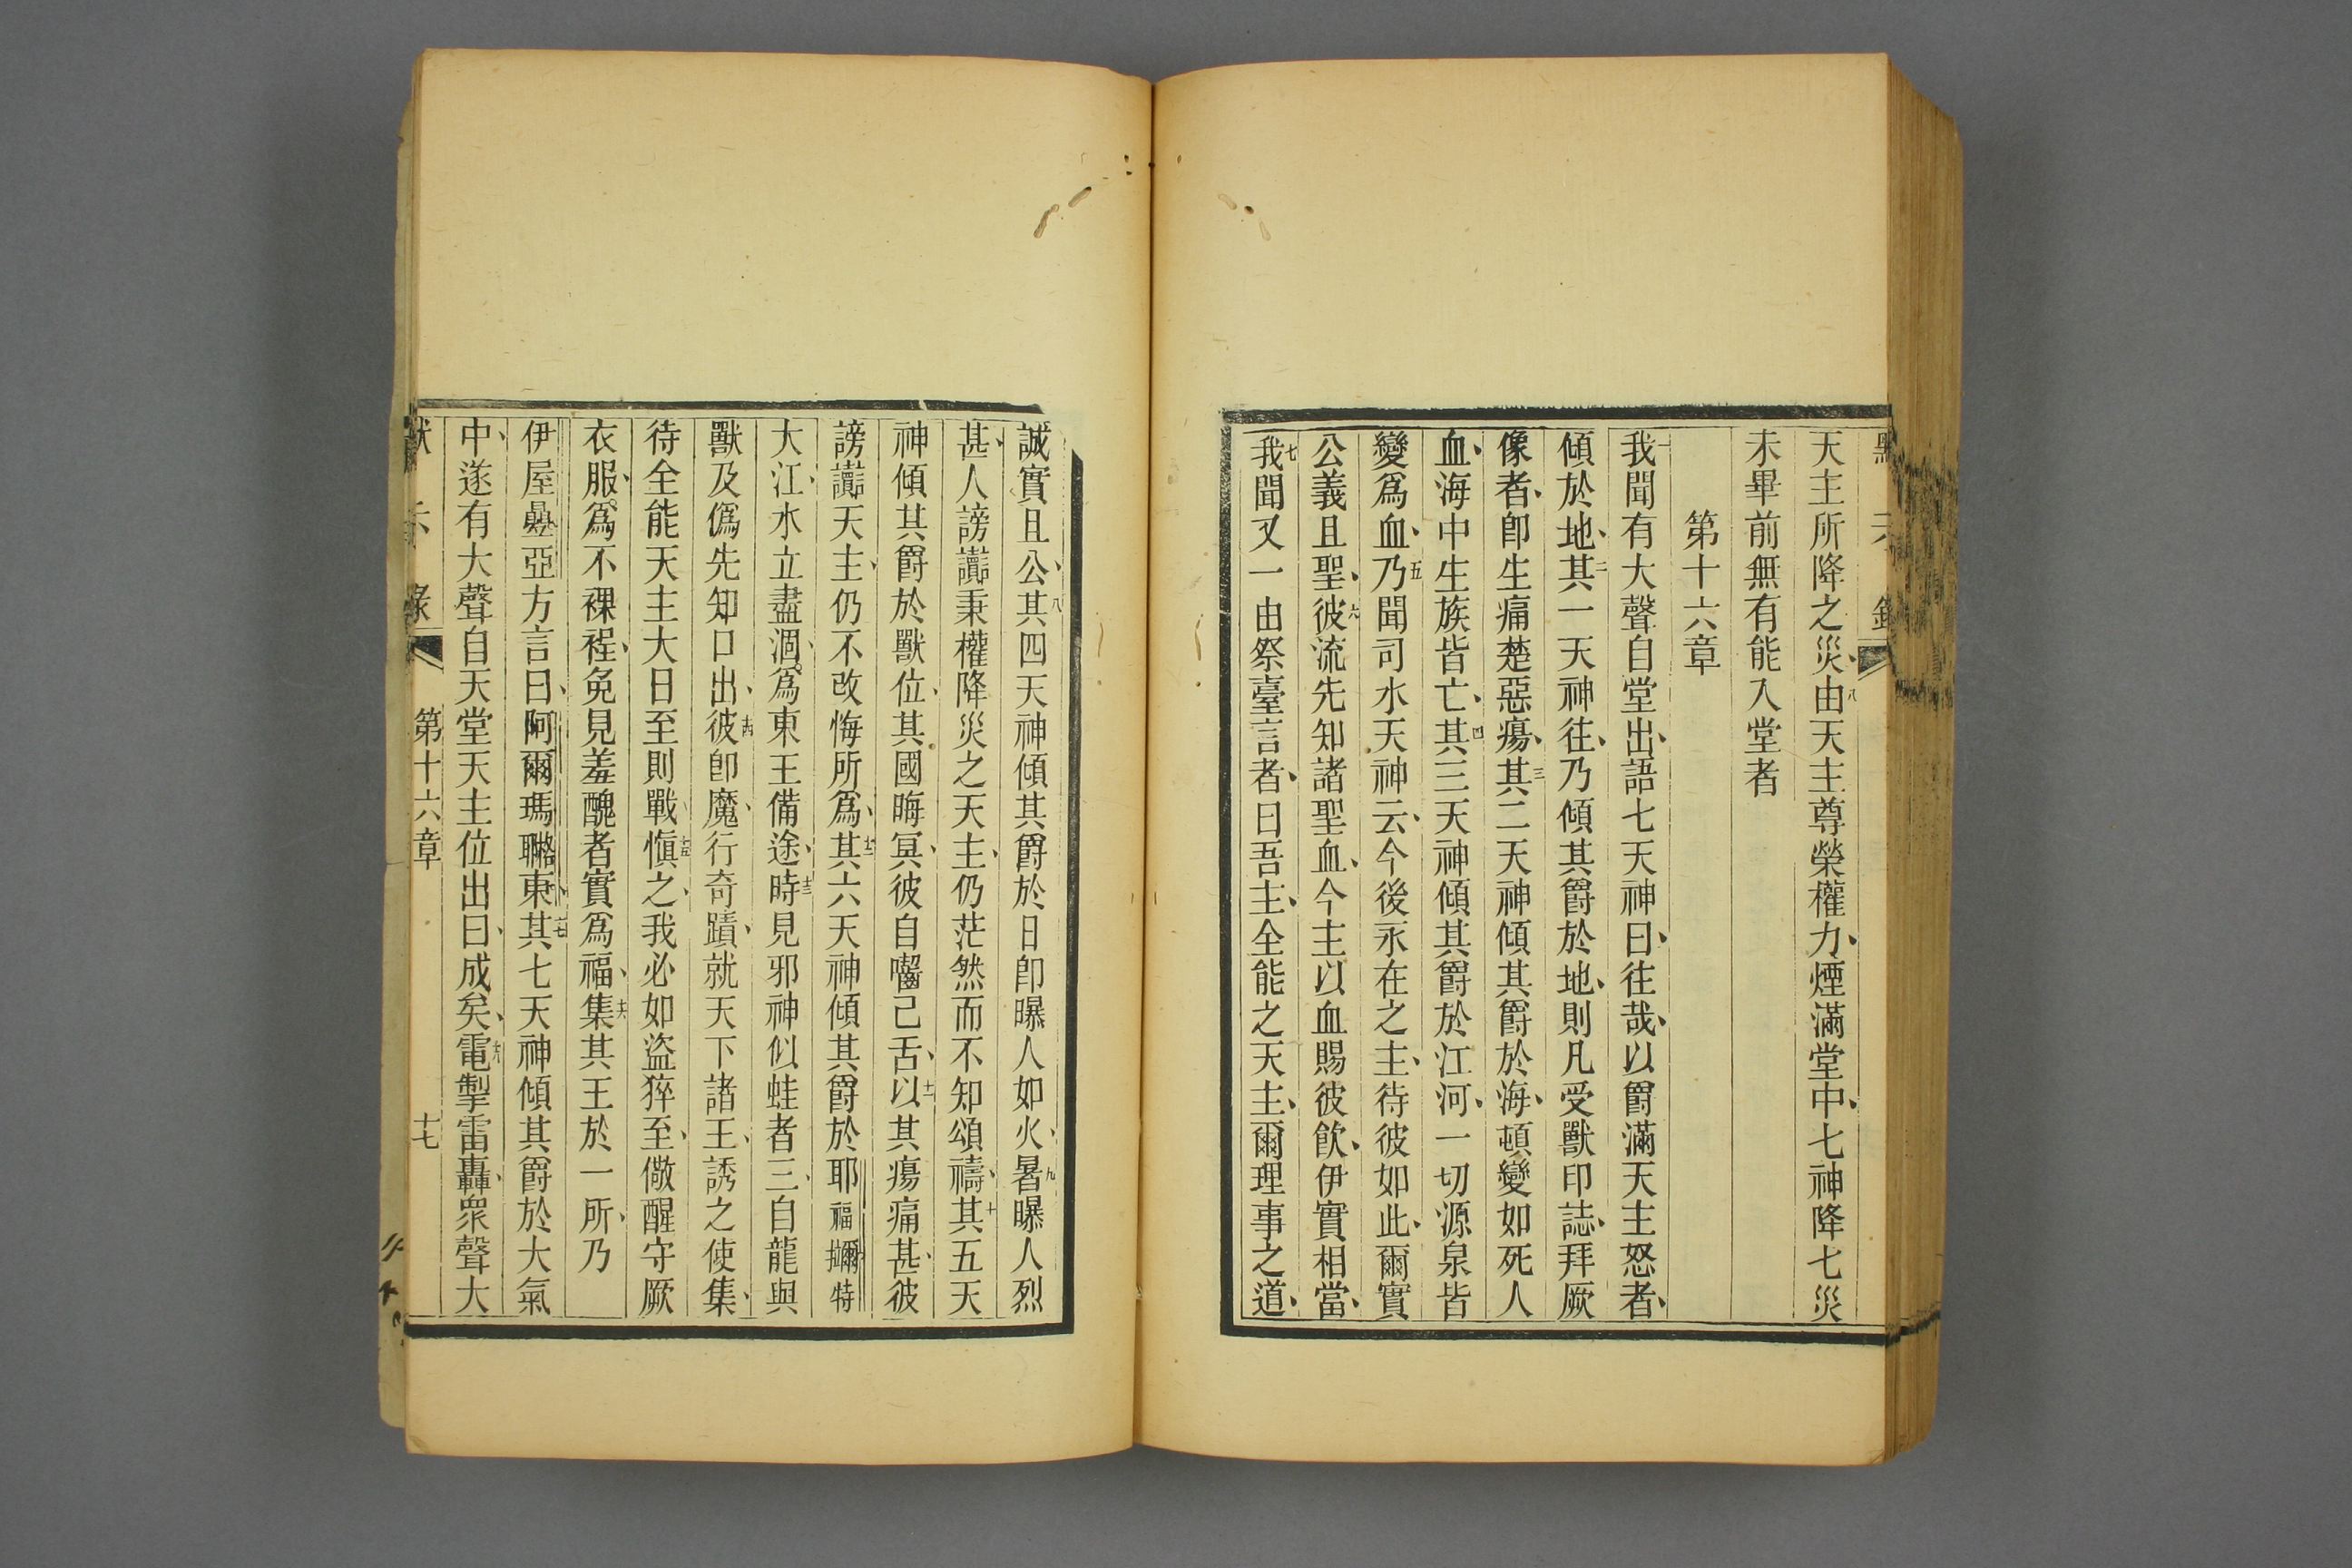 天主所降之災、八由天主尊榮權力、煙滿堂中、七神降七災
未畢前無有能入堂者
第十六章
一我聞有大聲自堂出、語七天神曰、往哉、以爵滿天主怒者、
傾於地、二其一天神往、乃傾其爵於地、則凡受獸印誌、拜厥
像者、卽生痛楚惡瘍、三其二天神傾其爵於海、頓變如死人
血、海中生族皆亡、四其三天神傾其爵於江河、一切源泉皆
變爲血、五乃聞司水天神云、今後永在之主、待彼如此、爾實
公義且聖、六彼流先知諸聖血、今主以血賜彼飮、伊實相當、
七我聞又一由祭臺言者、曰吾主、全能之天主、爾理事之道、
誠實且公、八其四天神傾其爵於日卽曝人如火、九暑曝人烈
甚、人謗讟秉權降災之天主、仍茫然而不知頌禱、十其五天
神傾其爵於獸位、其國晦冥、彼自囓己舌、十一以其瘍痛甚、彼
謗讟天主、仍不改悔所爲、十二其六天神傾其爵於耶福爾特
大江、水立盡涸、爲東王備途、十三時見邪神似蛙者三、自龍與
獸及僞先知口出、十四彼卽魔、行奇蹟、就天下諸王、誘之使集、
待全能天主大日至則戰、十五愼之、我必如盜猝至、儆醒守厥
衣服、爲不裸裎、免見羞醜者實爲福、十六集其王於一所、乃
伊屋方言曰、阿爾瑪東、十七其七天神傾其爵於大氣
中、遂有大聲自天堂天主位出曰、成矣、十八電掣雷轟、衆聲大
第十六章
十七